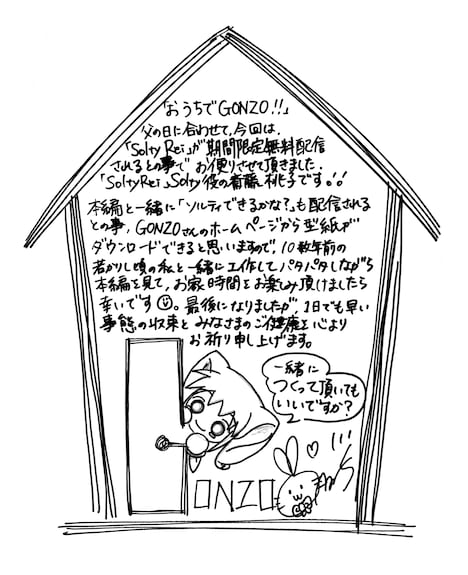 「おうちでGONZO!!」
父の日に合わせて、今回は、
「SoltyRei」が期間限定無料配信
されるとの事でお便りさせて頂きました、
「SoltyRei」Solty役の斎藤桃子です!!
本編と一緒に「ソルティできるかな?」も配信される
との事、GONZOさんのホームページから型紙が
ダウンロードできると思いますので、10数年前の
若かりし頃の私と一緒に工作してパタパタしながら
本編を見て、お家時間をお楽しみ頂けましたら
幸いです。最後になりましたが、1日でも早い
事態の収束とみなさまのご健康を心より
お祈り申し上げます。
一緒に
つくって頂いても
いいですか?
ONZO